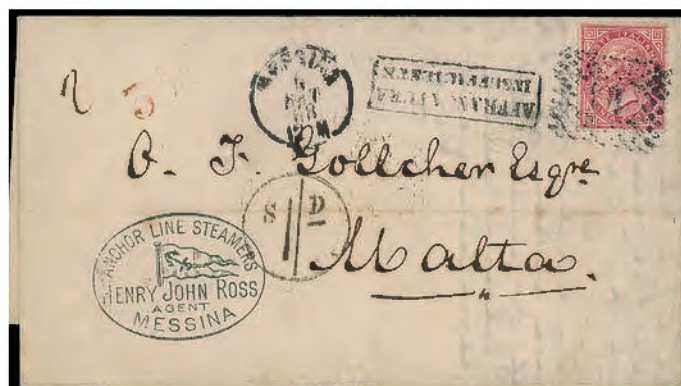 POSTE ITALIANE
MESSINA
12 M
AFFRANCATURA
INSUFFICIENTE
O. F. Gollcher Esqre
S D
Malta.
ANCHOR LINE STEAMERS
HENRY JOHN ROSS
AGENT
MESSINA